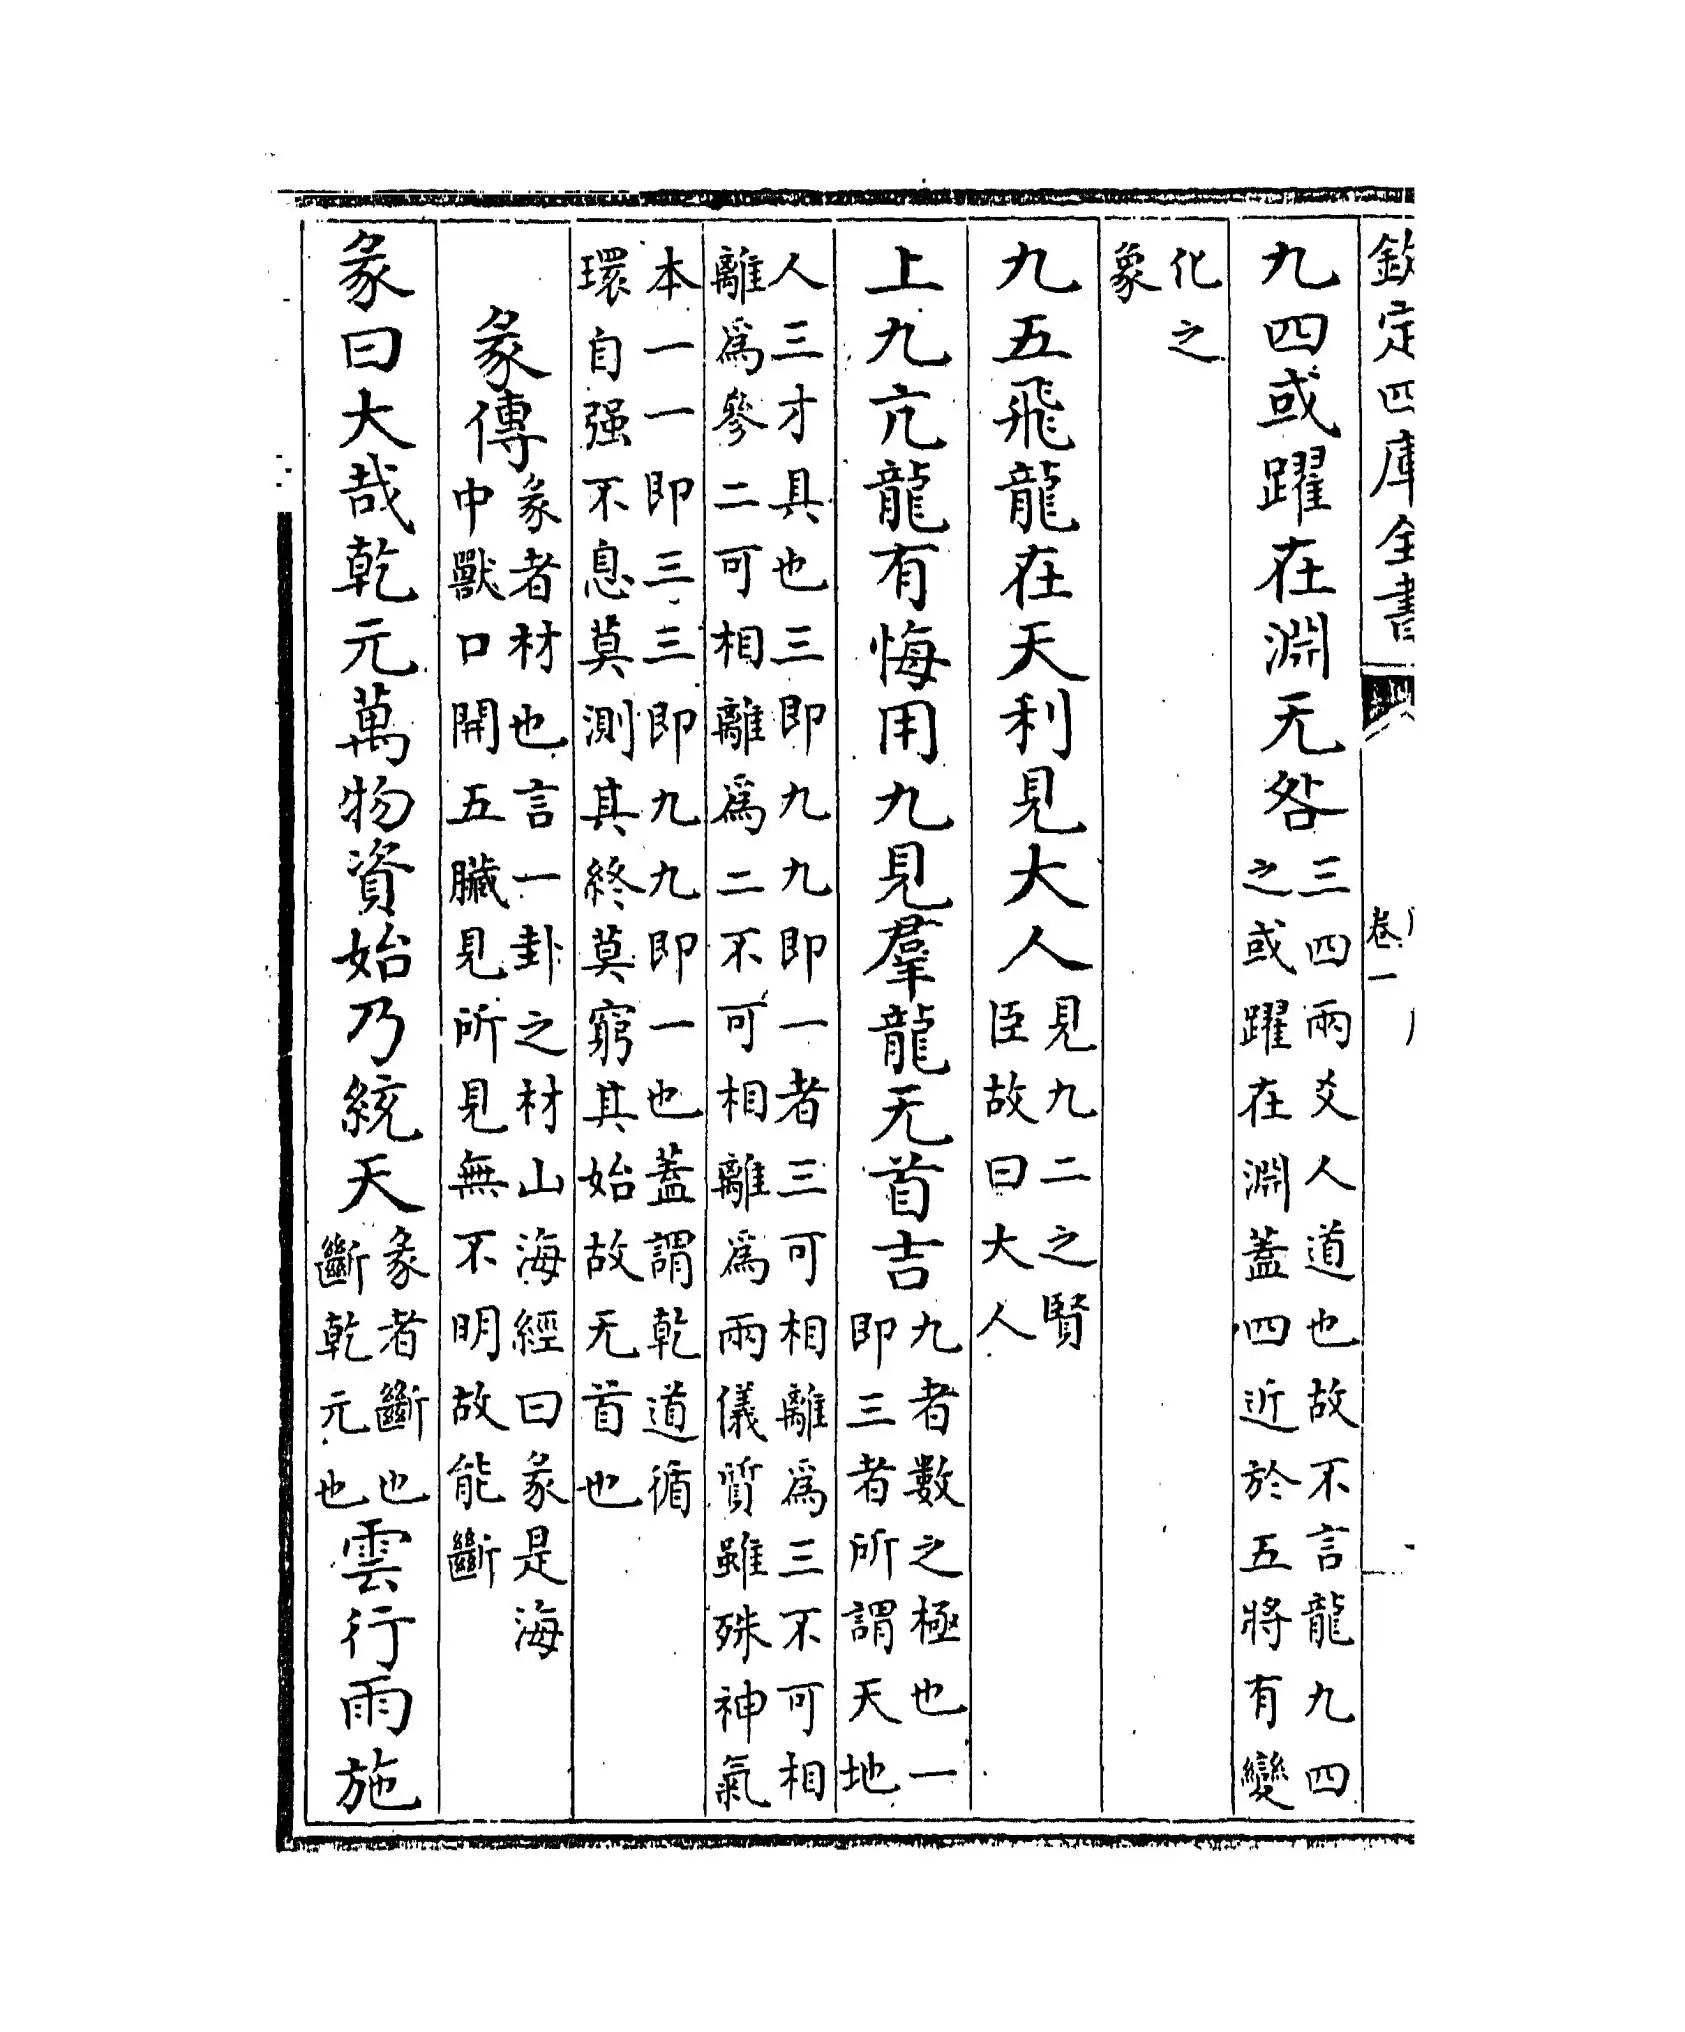 欽定四庫全書
卷一
九四或躍在淵无咎三四兩爻人道也故不言龍九四
之或躍在淵蓋四近於五將有變
化之
象
九五飛龍在天利見大人見九二之賢
臣故曰大人
上九亢龍有悔用九見羣龍无首吉九者數之極也一
即三者所謂天地
人三才具也三即九九即一者三可相離為三不可相
離為參二可相離為二不可相離為兩儀質雖殊神氣
本一一即三三即九九即一也蓋謂乾道循
環自强不息莫測其終莫窮其始故无首也
彖傳彖者材也言一卦之材山海經曰彖是海
中獸口開五臟見所見無不明故能斷
彖曰大哉乾元萬物資始乃統天彖者斷也
斷乾元也雲行雨施